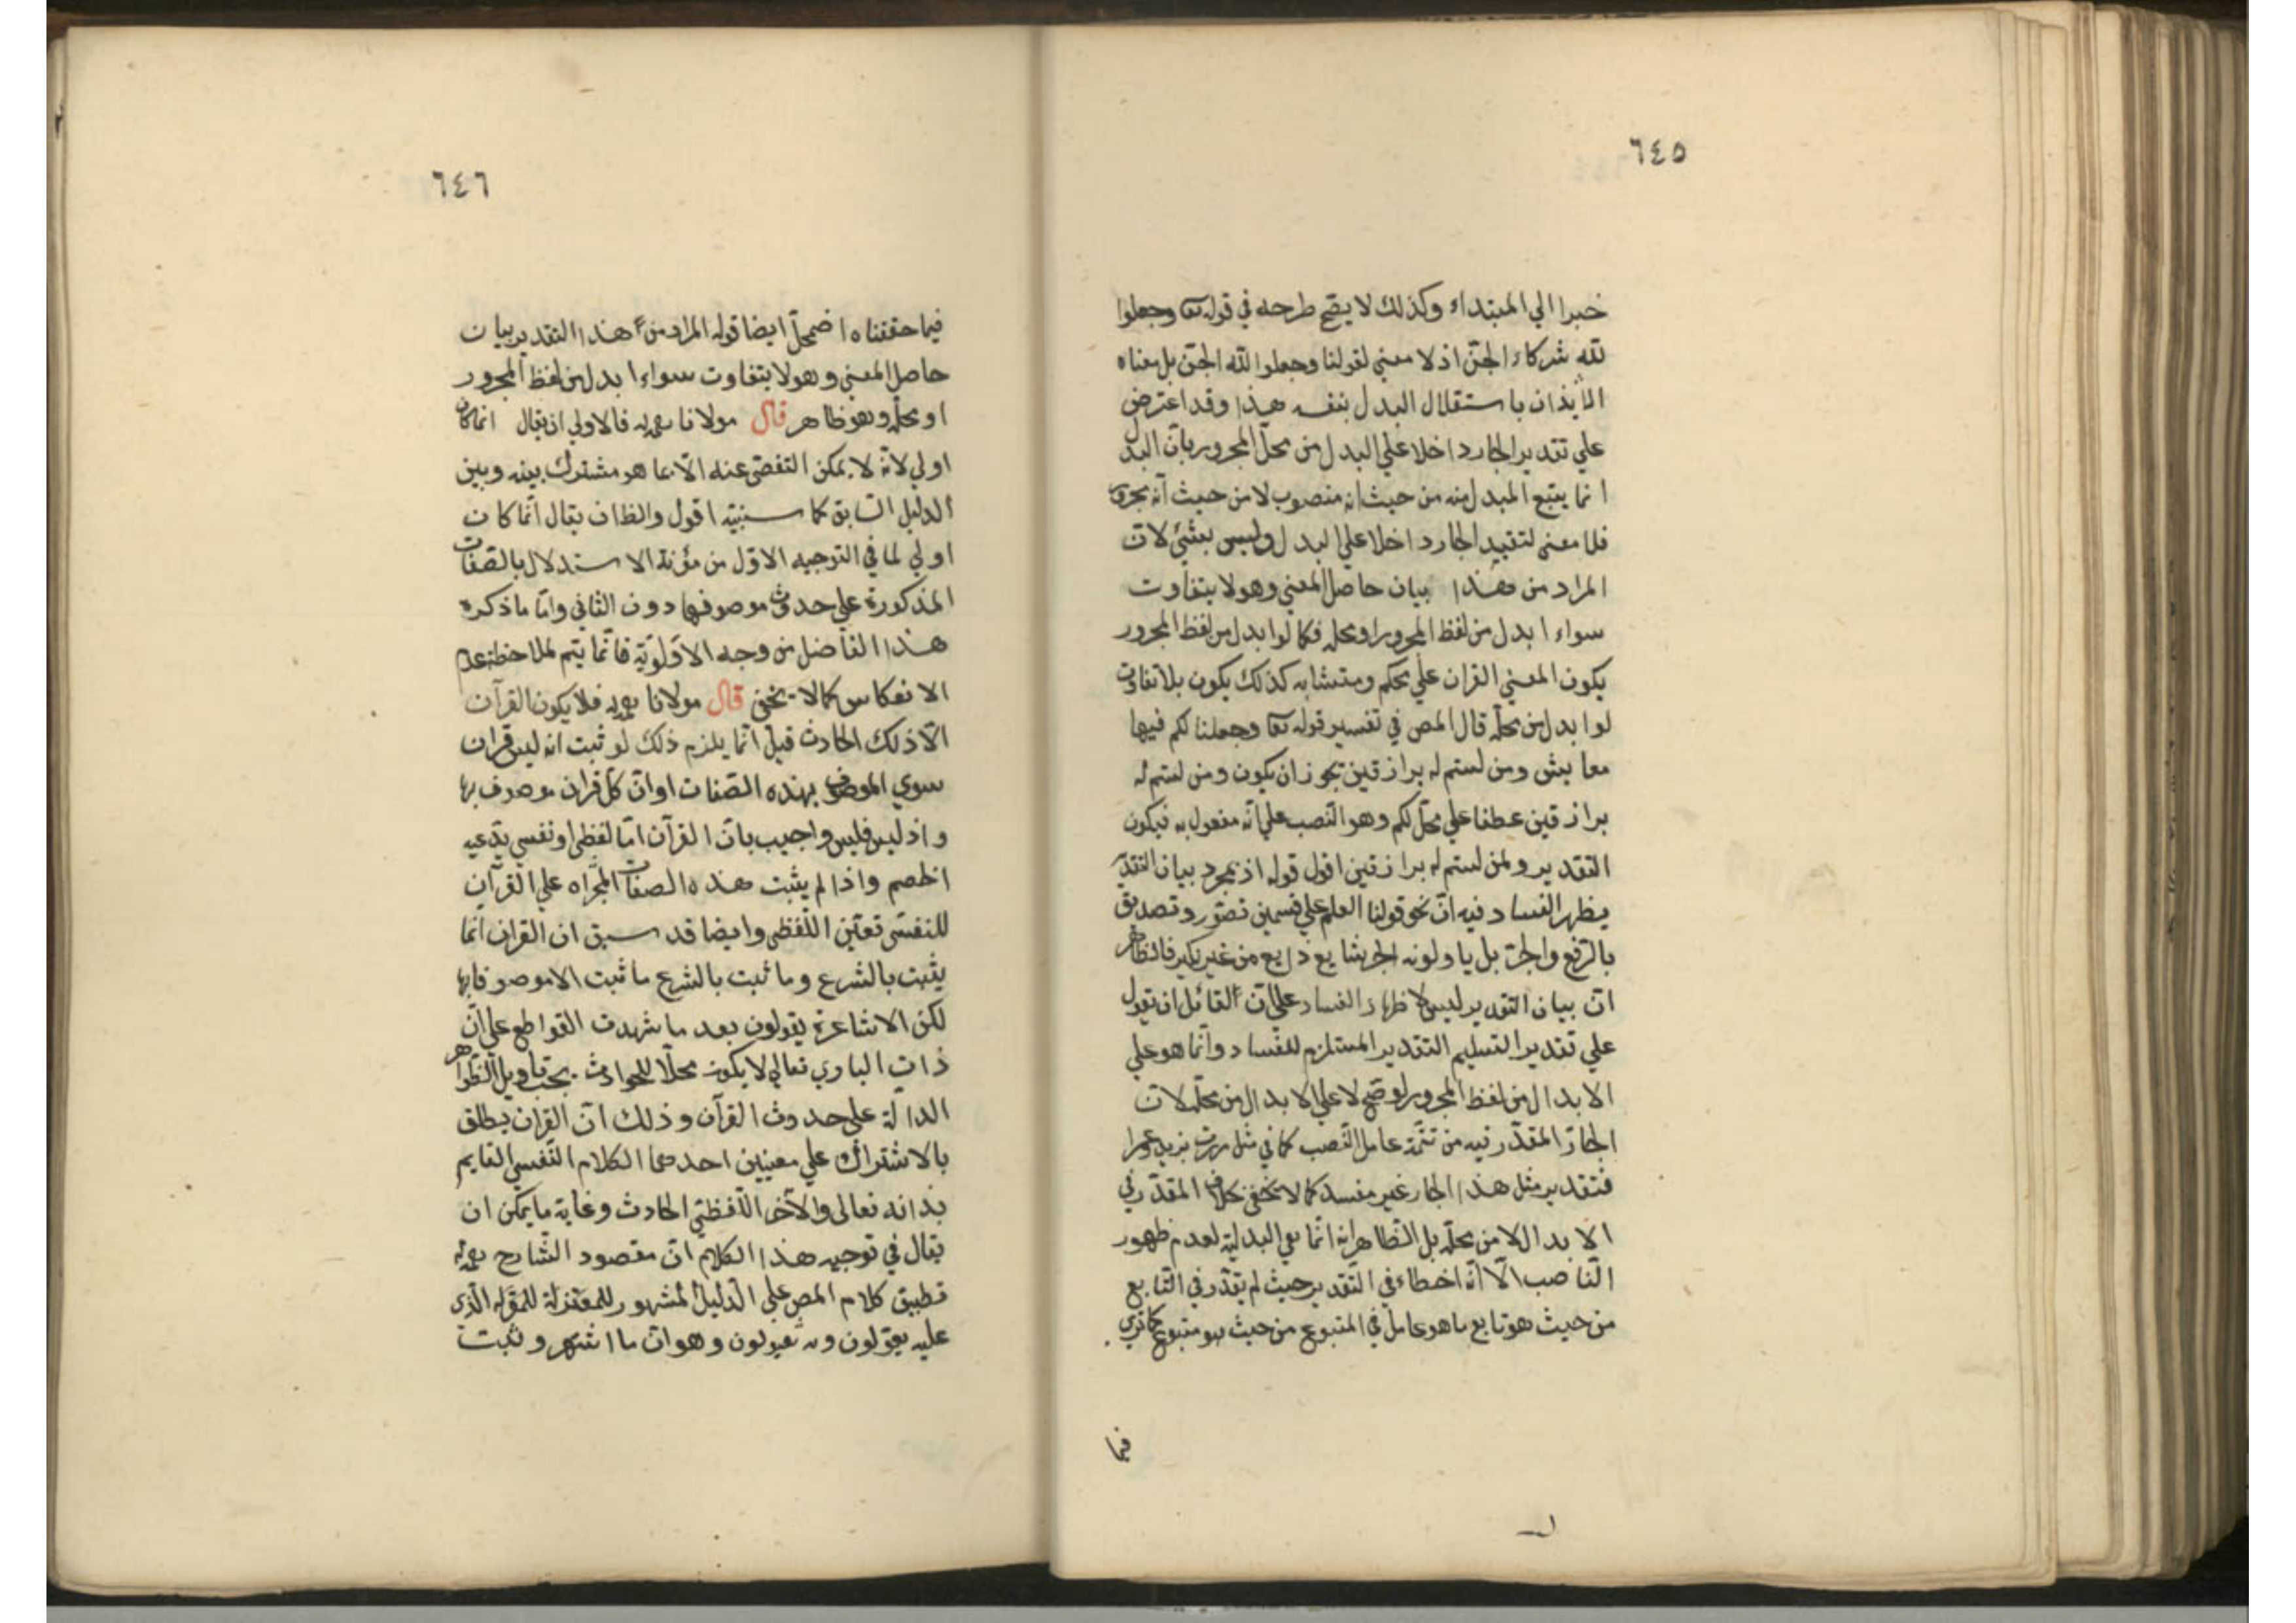 ٦٤٥
خبرا الي المبتداء وكذلك لا يصح طرحه في قوله تعا وجعلوا
لله شركاء الجن اذ لا معني لقولنا وجعلوا لله الجن بل معناه
الايذان باستقلال البدل بنفسه هذا وقد اعترض
علي تقدير الجار داخلا علي البدل من محل المجرور بان البدل
انما يتبع المبدل منه من حيث انه منصوب لا من حيث انه مجرور
فلا معني لتقييد الجار داخلا علي البدل وليس بشئ لان
المراد من هذا بيان حاصل المعني وهو لا يتفاوت
سواء ابدل من لفظ المجرور او محله فكما لو ابدل من لفظ المجرور
يكون المعني القران علي محكم ومتشابه كذلك يكون بلا تفاوت
لو ابدل من محله قال المص في تفسير قوله تعا وجعلنا لكم فيها
معايش ومن لستم له برازقين يجوز ان يكون ومن لستم له
برازقين عطفا علي محل لكم وهو النصب علي انه مفعول به فيكون
التقدير ولمن لستم له برازقين اقول قوله اذ بمجرد بيان التقدير
يظهر الفساد فيه ان نحو قولنا العلم علي قسمين تصور وتصديق
بالرفع والجر بل ياولونه الجر شايع ذايع من غير نكير فالظاهر
ان بيان التقدير ليس لاظهار الفساد علي ان القائل ان يقول
علي تقدير التسليم التقدير المستلزم للفساد وانما هو علي
الابدال من لفظ المجرور لو صح لا علي الابدال من محله لان
الجار المقدر فيه من تتمة عامل النصب كما في مثل مررت بزيد وعمرا
فتقدير مثل هذا الجار غير مفسد كما لا يخفى بخلاف المقدر في
الابدال لا من محله بل الظاهر انه انما بقي البدلية لعدم ظهور
الناصب الا انه اخطاء في التقدير حيث لم يقدر في التابع
من حيث هو تابع ما هو عامل في المتبوع من حيث هو متبوع كما تري
فيما
٦٤٦
فيما حققناه اضمحل ايضا قوله المراد من هذا التقدير بيان
حاصل المعني وهو لا يتفاوت سواء ابدل من لفظ المجرور
او محله وهو ظاهر قال مولانا فالاولي ان يقال انما كان
اولي لانه لا يمكن التفصي عنه الا بما هو مشترك بينه وبين
الدليل السابق كما سنبينه اقول والظان يقال انما كان
اولي لما في التوجيه الاول من مؤنة الاستدلال بالصفات
المذكورة علي حدوث موصوفها دون الثاني واما ما ذكره
هذا الفاضل من وجه الاولوية فانما يتم لملاحظة عدم
الانعكاس كما لا يخفي قال مولانا فلا يكون القرآن
الا ذلك الحادث قيل انما يلزم ذلك لو ثبت انه ليس قران
سوي الموصوف بهذه الصفات او ان كل قران موصوف بها
واذ ليس فليس واجيب بان القرآن اما لفظي او نفسي يدعيه
الخصم واذا لم يثبت هذه الصفات المجراه علي القرآن
للنفسي تعين اللفظي وايضا قد سبق ان القران انما
يثبت بالشرع وما ثبت بالشرع ما ثبت الا موصوفا بها
لكن الاشاعرة يقولون بعد ما شهدت القواطع علي ان
ذات الباري تعالي لا يكون محلا للحوادث يجب تاويل الظواهر
الدالة علي حدوث القرآن وذلك ان القران يطلق
بالاشتراك علي معنيين احدهما الكلام النفسي القايم
بذاته تعالى والآخر اللفظي الحادث وغاية ما يمكن ان
يقال في توجيه هذا الكلام ان مقصود الشارح
تطبيق كلام المص علي الدليل المشهور للمعتزلة الذي
عليه يعولون وبه يقولون وهو ان ما اشتهر وثبت